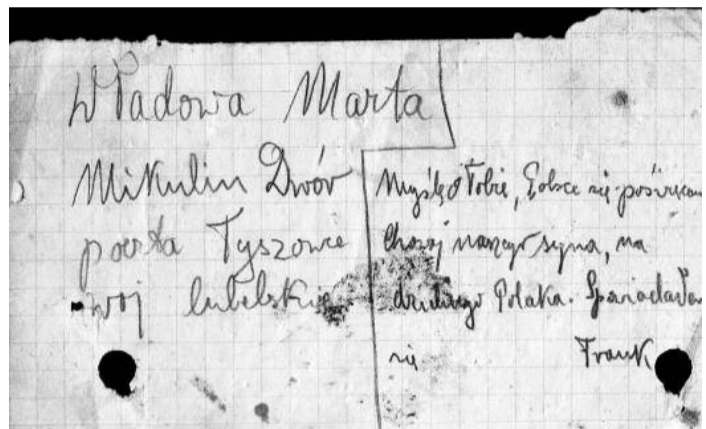 Władowa Marta
Mikulin Dwór
poczta Tyszowce
woj lubelskie
Myślę o Tobie, Polsce się poświęcam
Chowaj naszego syna, na
dzielnego Polaka. Spowiadałem
się Frank